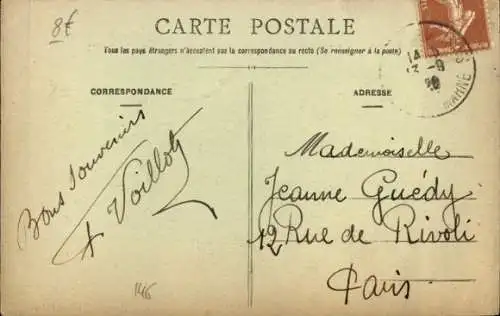 8f
CARTE POSTALE
Tous les pays étrangers n'acceptent pas la correspondance au recto (Se renseigner à la poste)
CORRESPONDANCE
ADRESSE
14
13 -9
MARNE
Bons Souvenirs
Voillot
Mademoiselle
Jeanne Guédy
12 Rue de Rivoli
Paris
146